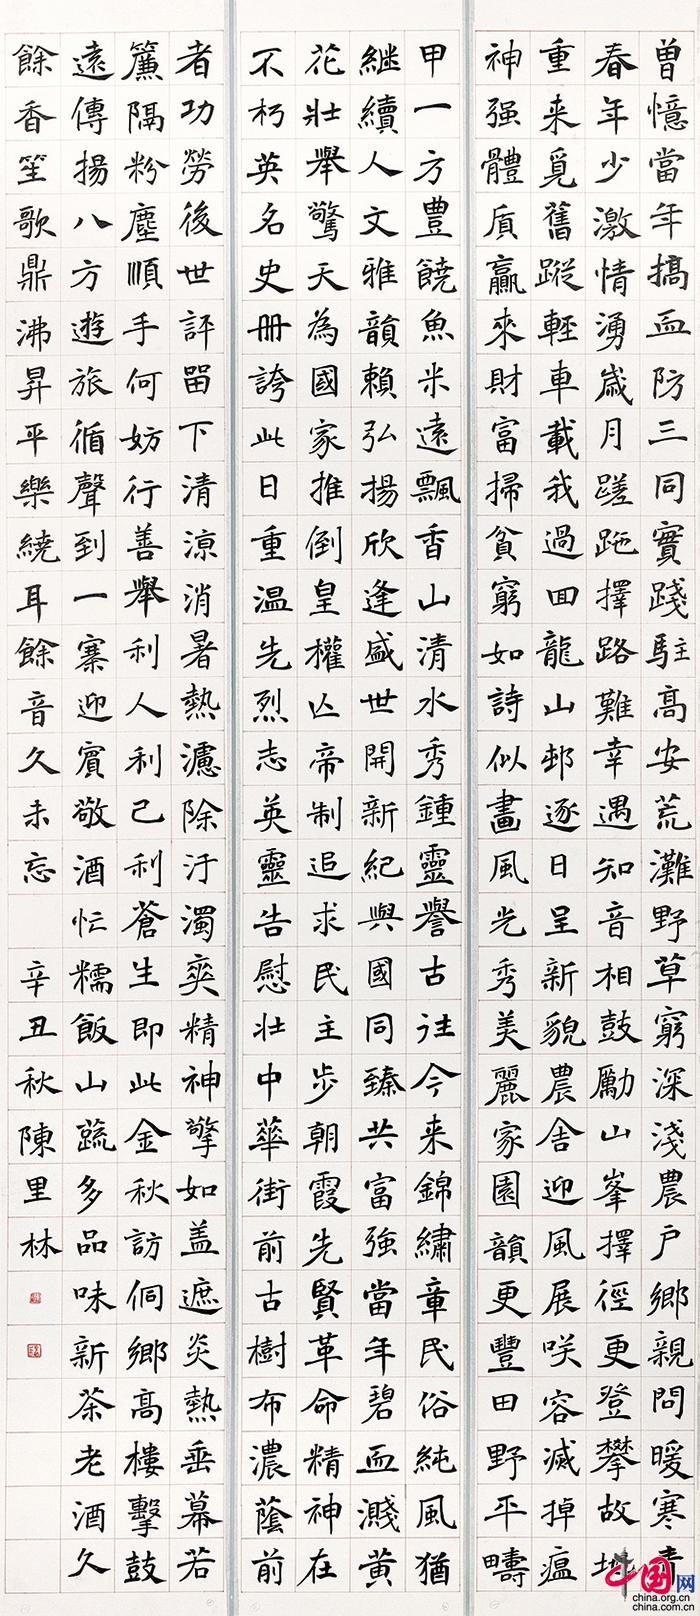 曾憶當年搞血防三同實踐駐高安荒灘野草窮深淺農戶鄉親問暖寒青
春年少激情湧歲月蹉跎擇路難幸遇知音相鼓勵山峯擇徑更登攀故地
重来覓舊蹤輕車載我過回龍山邨逐日呈新貌農舍迎風展咲容滅掉瘟
神强體質贏來財富掃貧窮如詩似畫風光秀美麗家園韻更豐田野平疇
甲一方豊饒魚米遠飄香山清水秀鍾靈譽古往今来錦繡章民俗純風猶
継續人文雅韻賴弘揚欣逢盛世開新紀與國同臻共富強當年碧血濺黄
花壯舉驚天為國家推倒皇權亡帝制追求民主步朝霞先賢革命精神在
不朽英名史冊誇此日重温先烈志英靈告慰壮中華街前古樹布濃蔭前
者功勞後世評留下清涼消暑熱濾除汙濁爽精神擎如盖遮炎熱垂幕若
簾隔粉塵順手何妨行善舉利人利己利蒼生即此金秋訪侗鄉高樓擊鼓
遠傳揚八方遊旅循聲到一寨迎賓敬酒忙糯飯山蔬多品味新茶老酒久
餘香笙歌鼎沸昇平樂繞耳餘音久未忘 辛丑秋陳里林
中国网
china.org.cn
china.com.cn